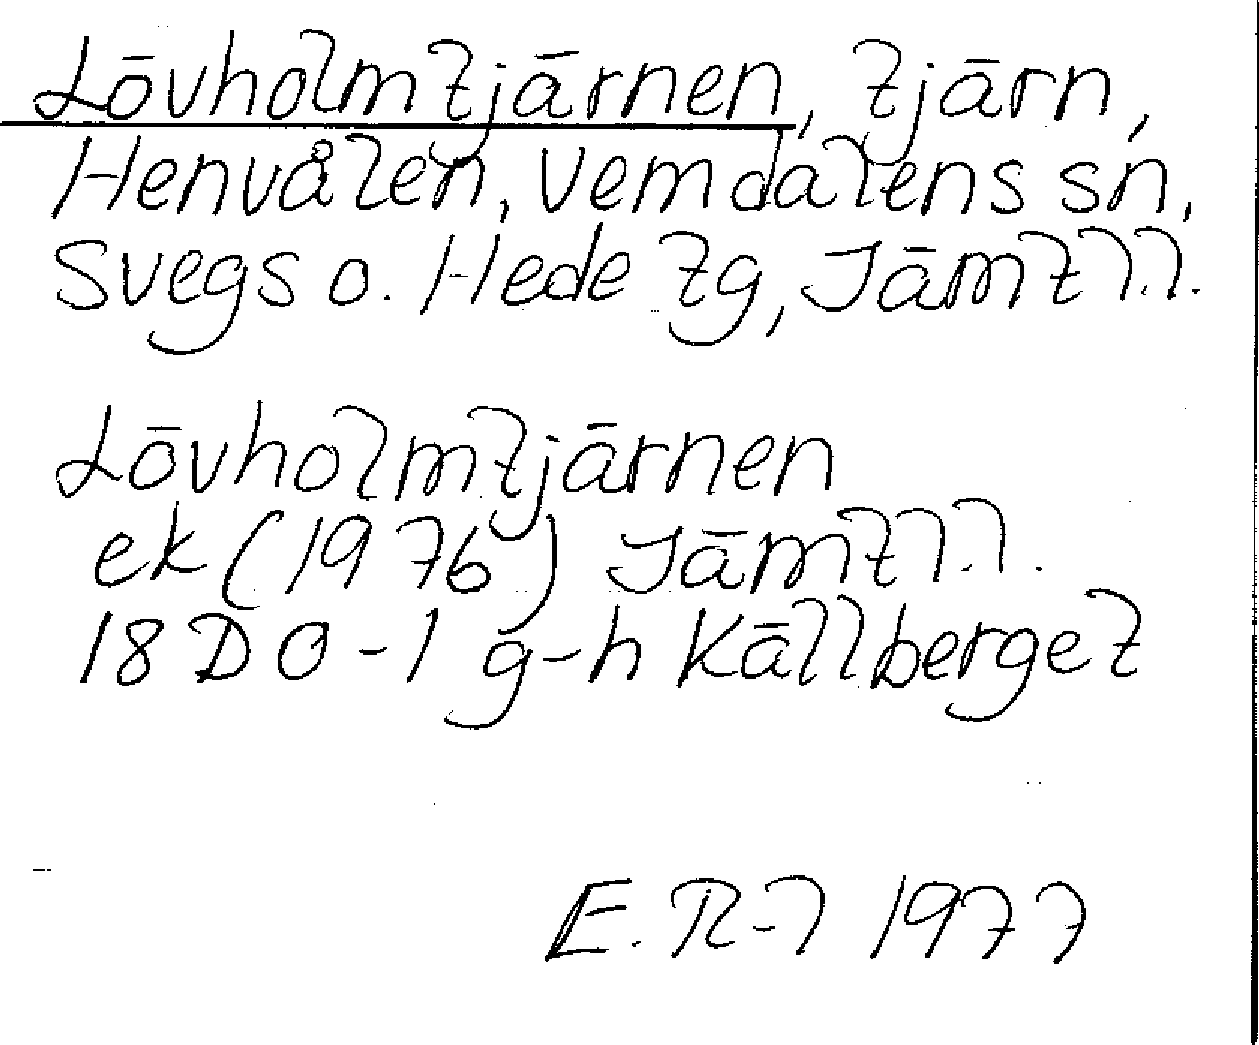 Lövholmtjärnen, tjärn,
Henvålen, Vemdalens sn,
Svegs o. Hede tg, Jämtl.l.
Lövholmtjärnen
ek (1976) Jämtl.l.
18D 0-1 g-h Källberget
E. R-l 1977